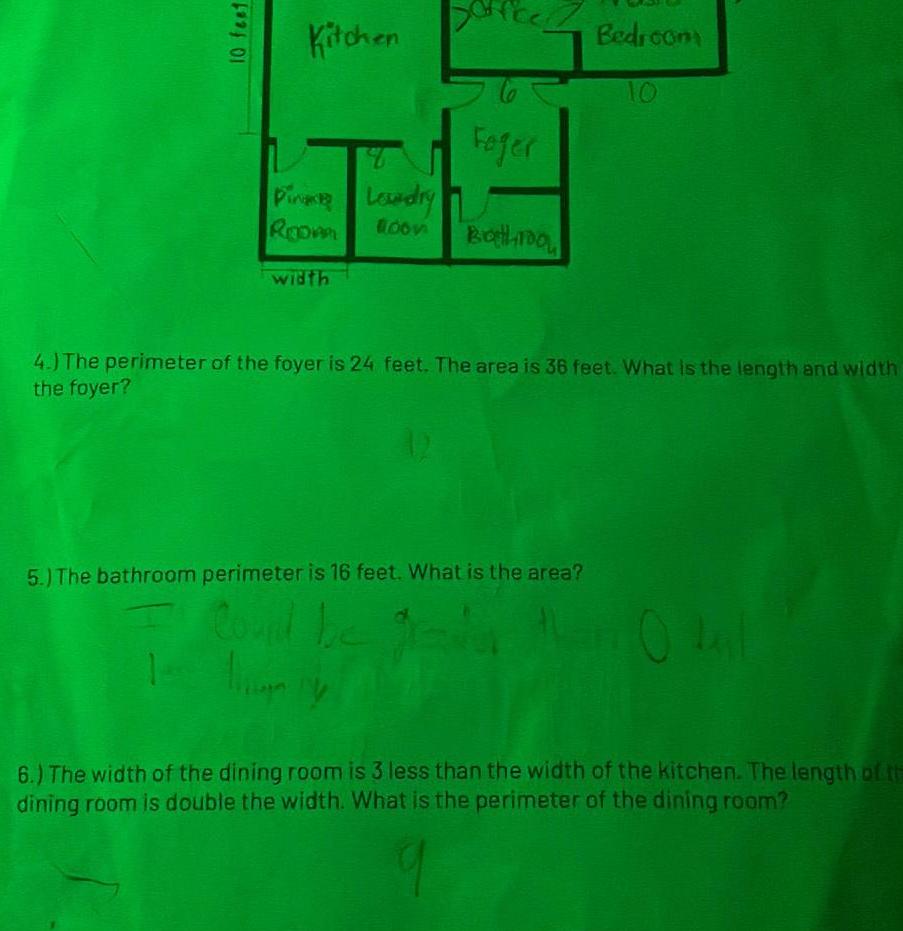 10 feet
Kitchen
Office
Bedroom
6
10
Foyer
Dining
Room
Laundry
Room
Bathroom
width
4.) The perimeter of the foyer is 24 feet. The area is 36 feet. What is the length and width
the foyer?
12
5.) The bathroom perimeter is 16 feet. What is the area?
I could be greater than 0 but
6.) The width of the dining room is 3 less than the width of the kitchen. The length of th
dining room is double the width. What is the perimeter of the dining room?
9